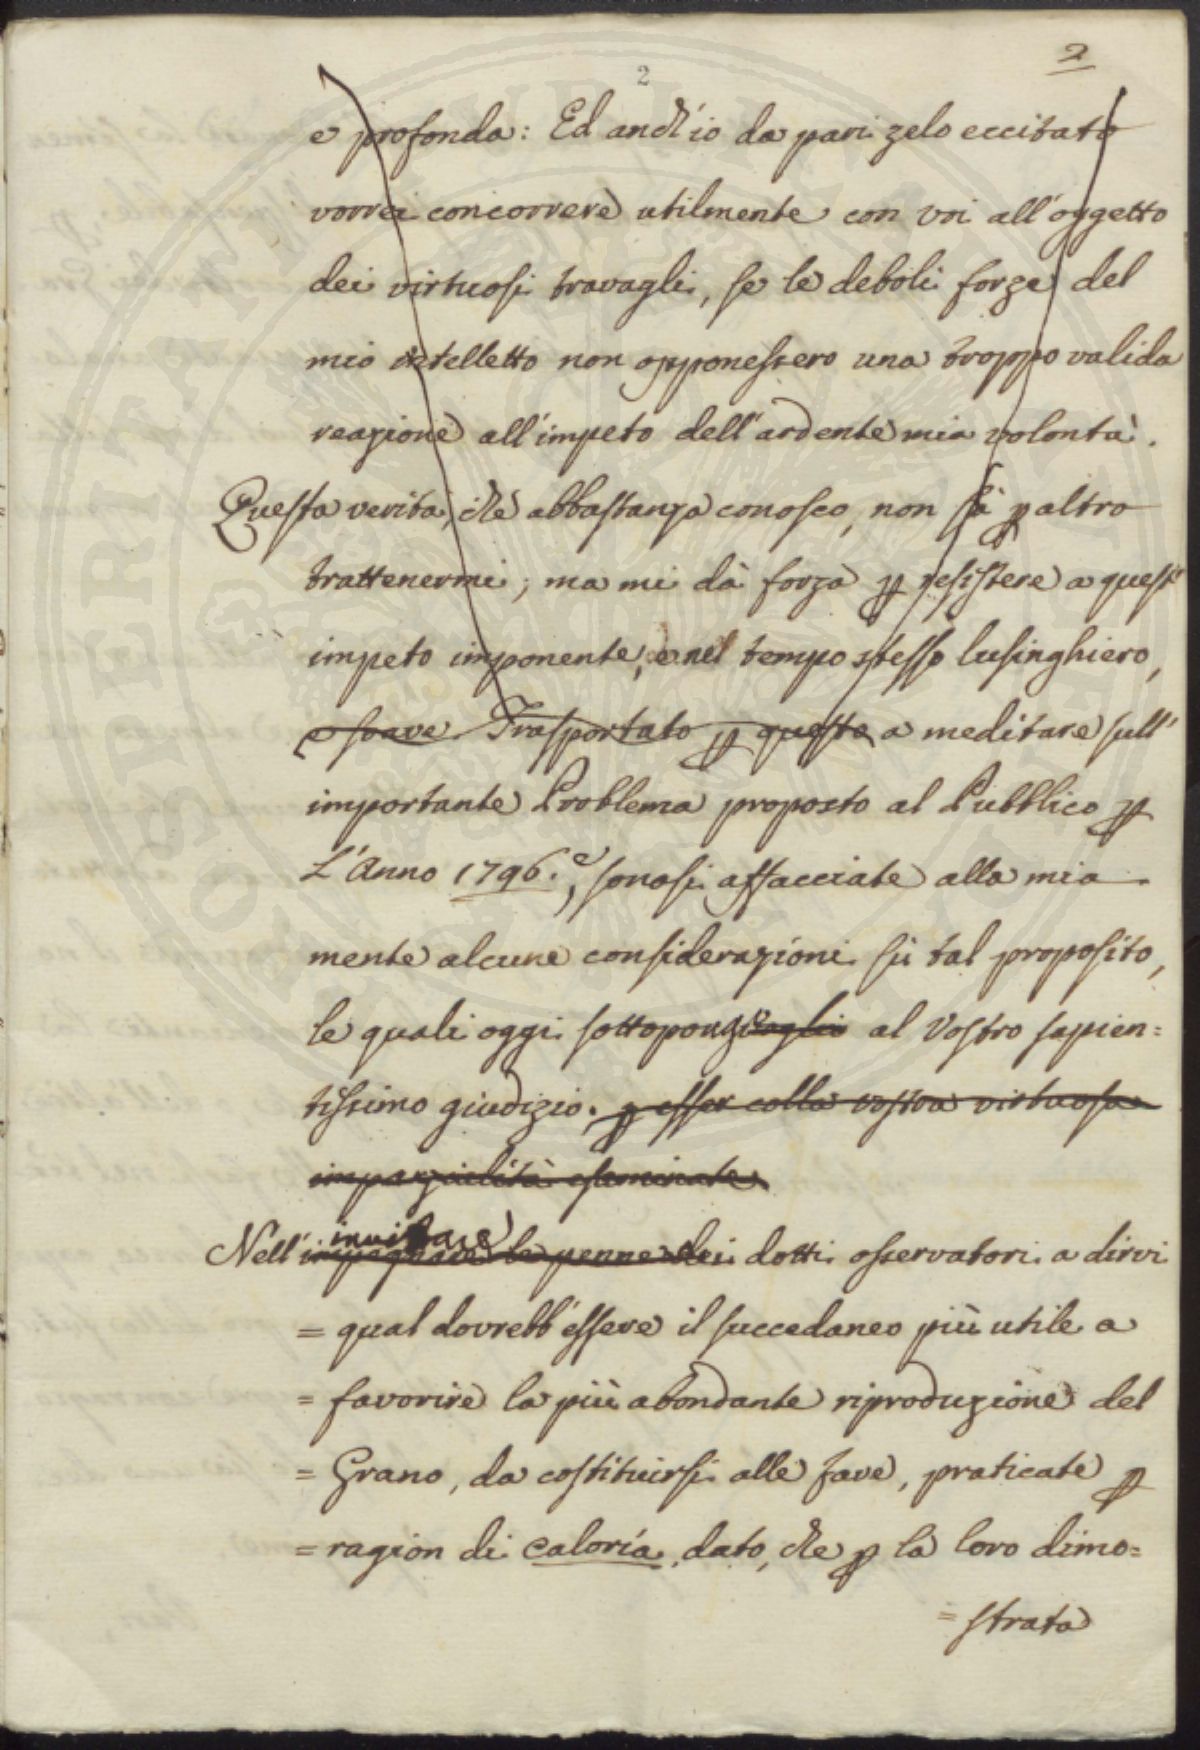 2
2
e profonda: Ed anch'io da pari zelo eccitato
vorrei concorrere utilmente con voi all'oggetto
dei virtuosi travagli, se le deboli forze del
mio intelletto non opponessero una troppo valida
reazione all'impeto dell'ardente mia volontà.
Questa verità, che abbastanza conosco, non sà p altro
trattenermi; ma mi dà forza p resistere a quest'
impeto imponente, e nel tempo stesso lusinghiero,
e soave. Trasportato p questo a meditare sull'
importante Problema proposto al Pubblico p
L'Anno 1796.e, sonosi affacciate alla mia
mente alcune considerazioni sù tal proposito,
le quali oggi sottopongo al Vostro sapien=
tissimo giudizio. p esser colla vostra virtuosa
imparzialità esaminate
invitare
Nell'impegnare le penne dei dotti osservatori a dirvi
= qual dovrebb'essere il succedaneo più utile a
= favorire la più abondante riproduzione del
= Grano, da costituirsi alle fave, praticate p
= ragion di caloría, dato, che p la loro dimo=
= strata
PROSPERITATI PUBLICAE